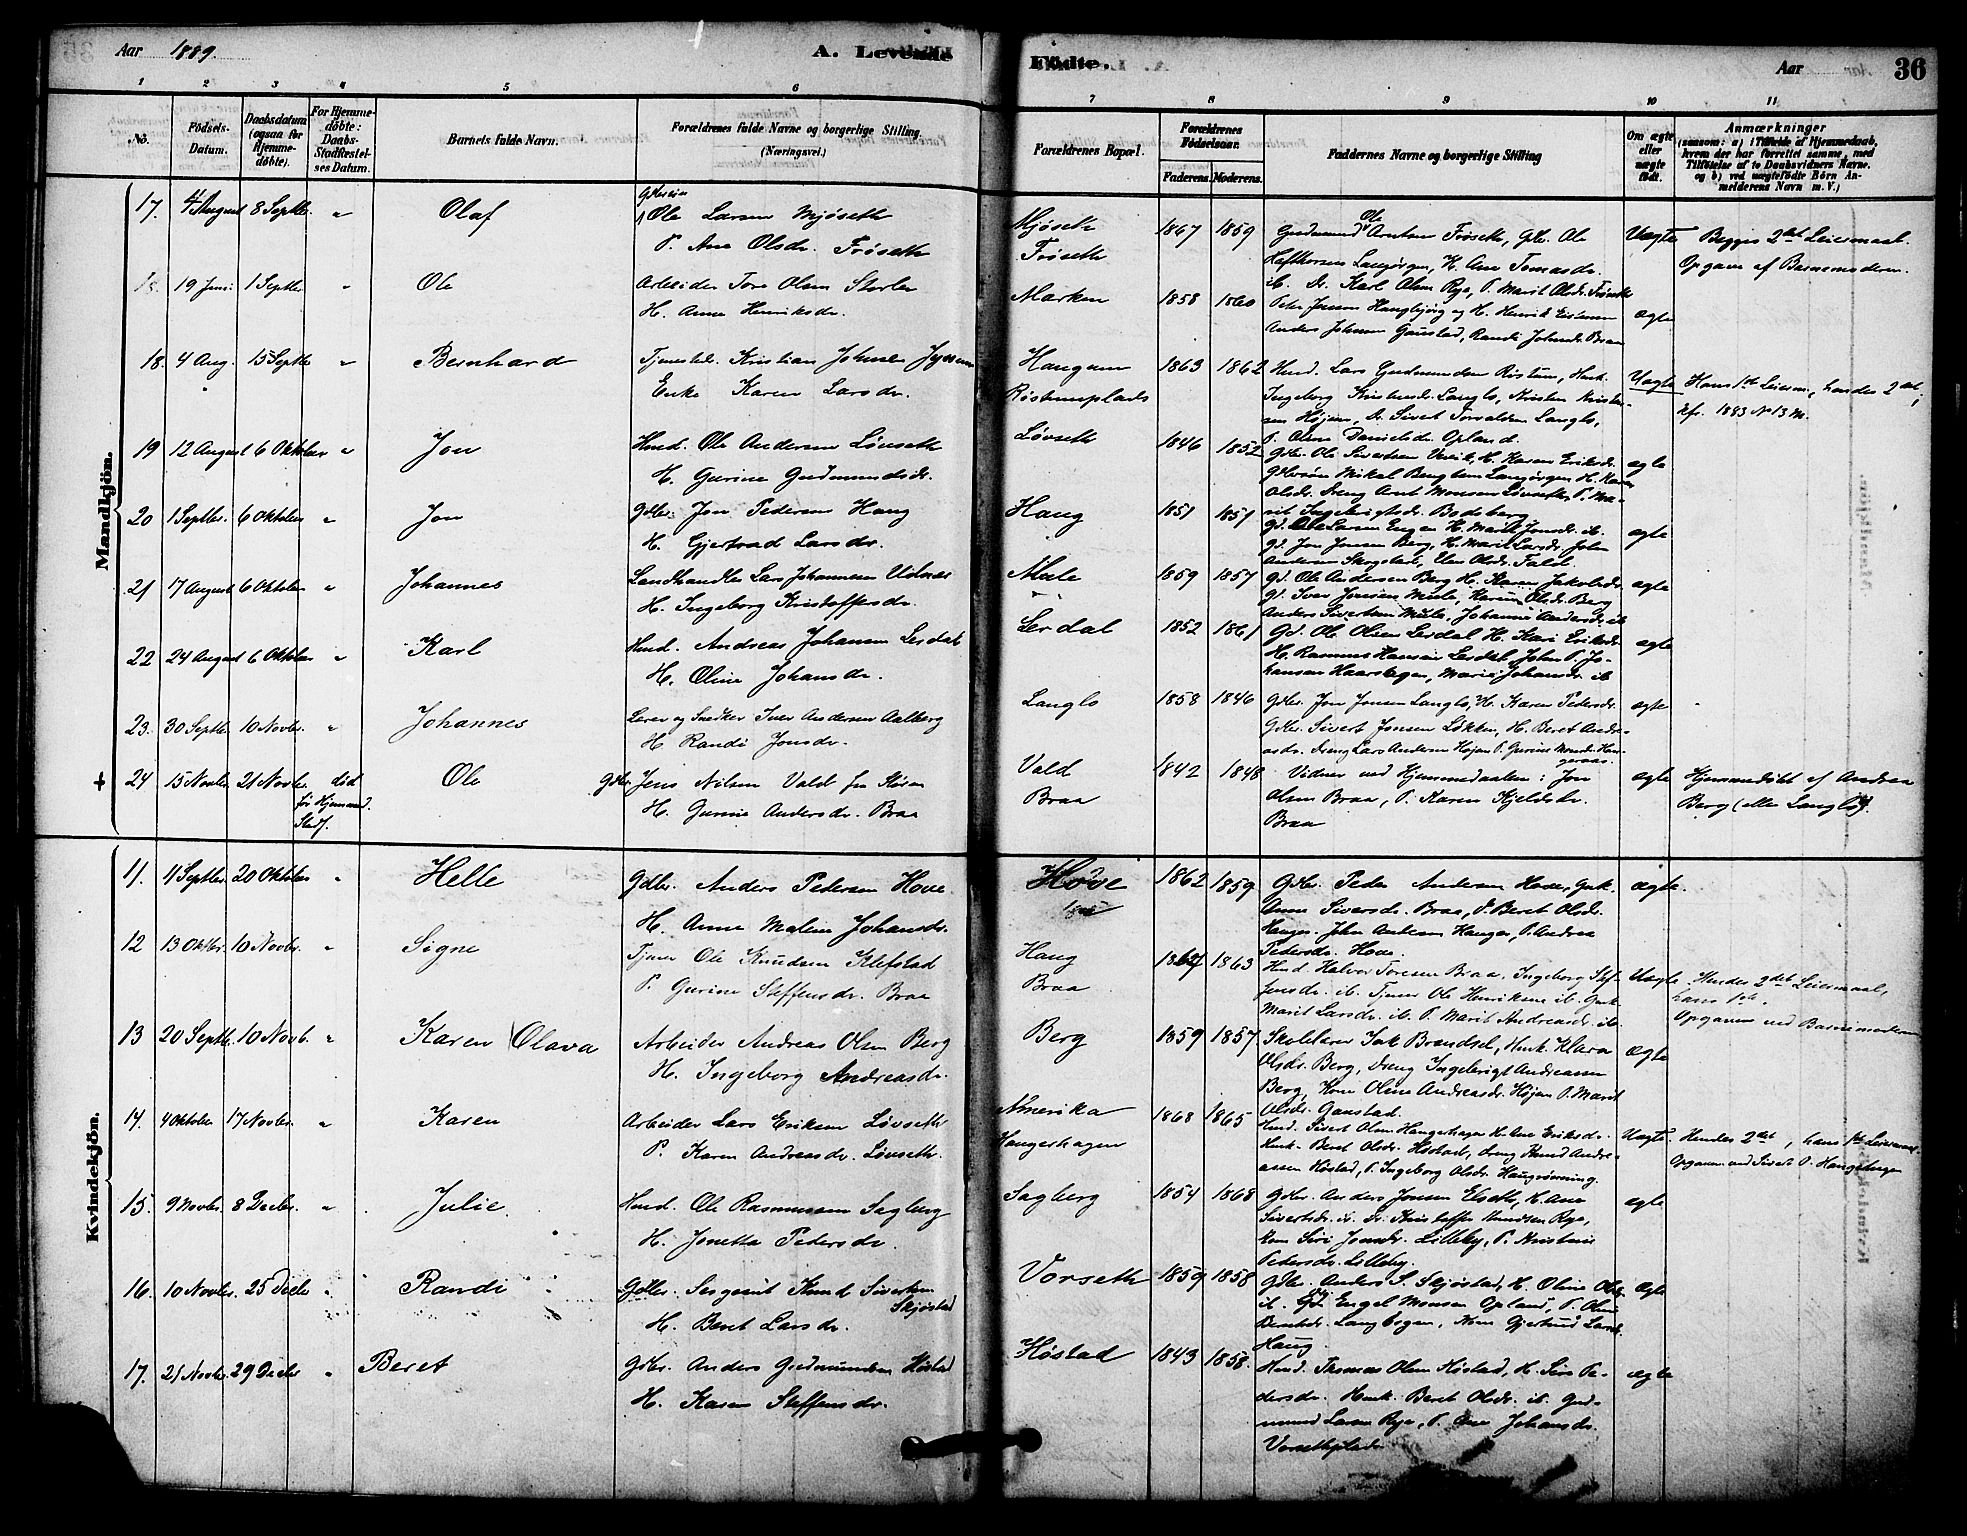 Aar 1889.
A. Levende
Fødte.
Aar
36
1 2 3 4 5 6 7 8 9 10 11
No.
Fødsels-
Datum.
Daabsdatum
(ogsaa for
Hjemme-
døbte).
For Hjemme-
døbte:
Daabs-
Stadfæstel-
ses Datum.
Barnets fulde Navn.
Forældrenes fulde Navne og borgerlige Stilling.
(Næringsvei.)
Forældrenes Bopæl.
Forældrenes
Fødselsaar.
Faderens. Moderens.
Faddernes Navne og borgerlige Stilling
Om ægte
eller
uægte
født.
Anmærkninger
(saasom: a) i Tilfælde af Hjemmedaab,
hvem der har forrettet samme, med
Tilføielse af to Daabsvidners Navne.
og b) ved uægtefødte Børn An-
melderens Navn m. V.)
Mandkjön.
17. 4 August 8 Septbr. " Olaf
Ole Larsen Mjøseth
P. Ane Olsdr. Frøseth
Mjøseth 1867 1859
Frøseth
Ole
Gudmund Anton Frøseth, Gbr. Ole
Hafthorsen Langørgen, K. Ane Tomasdr.
ib. Dr. Karl Olsen Rye, P. Marit Olsdr. Frøseth
Uægte
Begges 2det Leiermaal.
Opgavn af Barnemoderen.
19 Juni 1 Septbr " Ole
Arbeider Tore Olsen Storler
H. Anne Henriksdr.
Marken 1858 1860
Anders Johnsen Gaustad, Randi Johnsdr. Braa
ægte
18. 4 Aug. 15 Septbr " Bernhard
Kristian Johnsen
Enke Karen Larsdr.
Haugum 1863 1862
Røstumplads
Lars Gudmundsen Røstum,
Ingeborg Langlo, Kristen Kristen-
sen Højem, Dr. Sivert Torvaldsen Langlo,
P. Oline Danielsdr. Opland
Uægte
Hans 1ste Leierm., hendes 2det,
kfr. 1883 N 13 M.
19 12 August 6 Oktober " Jon
Husd. Ole Andersen Løvseth
H. Gurine Gudmundsdr.
Løvseth 1846 1852
Gbr. Ole Sivertsen H. Karen Eriksdr.
Mikal Bengtsen Langørgen H. Karen
Olsdr. Dreng Arnt Monsen Løvseth, P. Ma-
rit Ingebrigtsdr. Bodsberg
ægte
20 1 Septbr. 6 Oktober " Jon
Gdbr. Jon Pedersen Haug
H. Gjertrud Larsdr.
Haug 1851 1851
Gd. Ole Larsen Engen H. Marit Jonsdr. ib.
Gd. Jon Jonsen Berg, H. Marit Larsdr. John
Andersen Skogstad, Elen Olsdr. Fald.
ægte
21 7 August 6 Oktober " Johannes
Landhandler Lars Johannesen Udnæs
H. Ingeborg Kristoffersdr.
Mule 1859 1857
Gd. Ole Andersen Berg H. Karen Jakobsdr.
Gd. Iver Jonsen Mule, Karen Olsdr. Berg
Anders Sivertsen Mule, Johanna Andersdr. ib
ægte
22 24 August 6 Oktober " Karl
Husd. Andreas Johansen Lerdal
H. Oline Johansdr.
Lerdal 1852 1861
Gd. Ole Olsen Lerdal H. Kari Eriksdr.
H. Rasmus Hansen Lerdal, John P. Jo-
hansen Haarstegen, Marie Johansdr. ib
ægte
23. 30 Septbr. 10 Novbr. " Johannes
Lærer og Snedker Iver Andersen Aalberg
H. Randi Jonsdr.
Langlo 1858 1846
Gdbr. Jon Jonsen Langlo, H. Karen Pedersdr.
Gdbr. Sivert Jonsen Løkken, H. Beret Andre-
asdr. Dreng Lars Andersen Højem P. Gurine
ægte
+ 24 15 Novbr. 21 Novbr. død
før Hjemmed.
Stadf.
Ole
Gdbr. Jens Nilsen Vald fra Støren
H. Gurine Andersdr. Braa
Vald 1842 1848
Braa
Vidner ved Hjemmedaaben: Jon
Olsen Braa, P. Karen Kjeldsdr.
Braa
ægte
Hjemmedøbt af Andrea
Berg (eller Langlo).
Kvindekjön.
11. 11 Septbr. 20 Oktober " Helle
Gdbr. Anders Pedersen Hove
H. Anne Malene Johansdr.
Hove 1862 1859
Gdbr. Peder Andersen Hove, Gmk.
Anne Siversdr. Braa, P. Beret Olsdr.
Hanger. John Andersen Hanger, P. Andrea
Pedersdr. Hove.
ægte.
12 13 Oktbr. 10 Novbr. " Signe
Tjener Ole Knudsen Klefstad
P. Gurine Steffensdr. Braa
Haug 1864 1863
Braa
Husd. Halvor Toresen Braa, Ingeborg Stef-
fensdr. ib. Tjener Ole Henriksen ib. Gmk.
Marit Larsdr. ib. P. Marit Andreasdr. ib.
Uægte
Hendes 2det Leiermaal,
hans 1ste.
Opgavn ved Barnemoderen
13 20 Septb. 10 Novb. " Karen (Olava
Arbeider Andreas Olsen Berg
H. Ingeborg Andreasdr.
Berg 1859 1857
Skolelærer Isak Brandsel, Husk. Klara
Olsdr. Berg, Dreng Ingebrigt Andreassen
Berg, Kone Oline Andreasdr. Højem P. Marit
Olsdr. Gaustad.
ægte
14. 4 Oktober 17 Novbr. " Karen
Arbeider Lars Eriksen Løvseth
P. Karen Andreasdr. Løvseth.
Amerika 1868 1865
Haugerhagen
Husd. Sivert Olsen Haugerhagen H. Ane Eriksdr.
Husk. Beret Olsdr. Høstad, Dreng Knud Andre-
assen Høstad, P. Ingeborg Olsdr. Haugrønning.
Uægte.
Hendes 2det, hans 1ste Leiermaal.
Opgavn ved Sivert O. Haugerhagen
15. 9 Novbr. 8 Decbr. " Julie.
Husd. Ole Rasmussen Sagberg
H. Jonetta Pedersdr.
Sagberg 1854 1868
Gdbr. Anders Jonsen Elseth, H. Ane
Sivertsdr. ib. Dr. Kristoffer Knudsen Rye,
Kone Siri Jonsdr. Lilleby, P. Kristine
Pedersdr. Lilleby.
ægte
16. 10 Novbr. 25 Decbr " Randi
Gdbr. Sergeant Knud Sivertsen
Skjøstad
H. Beret Larsdr.
Vorseth 1859 1858
Gdbr. Anders S. Skjøstad, H. Oline Olsdr.
ib. Engel Monsen Opland, P. Oline
Berntsdr. Langbegen, Kone Gjertrud Larsd.
Haug.
ægte
17. 21 Novbr. 29 Decbr " Beret
Gdbr. Anders Gudmundsen Høstad
H. Karen Steffensdr.
Høstad 1843 1858.
Husd. Thomas Olsen Høstad, H. Siri Pe-
dersdr. Husk. Beret Olsdr. ib. Gud-
mund Larsen Rye, P. Ane Johansdr.
Vorsethplads
ægte